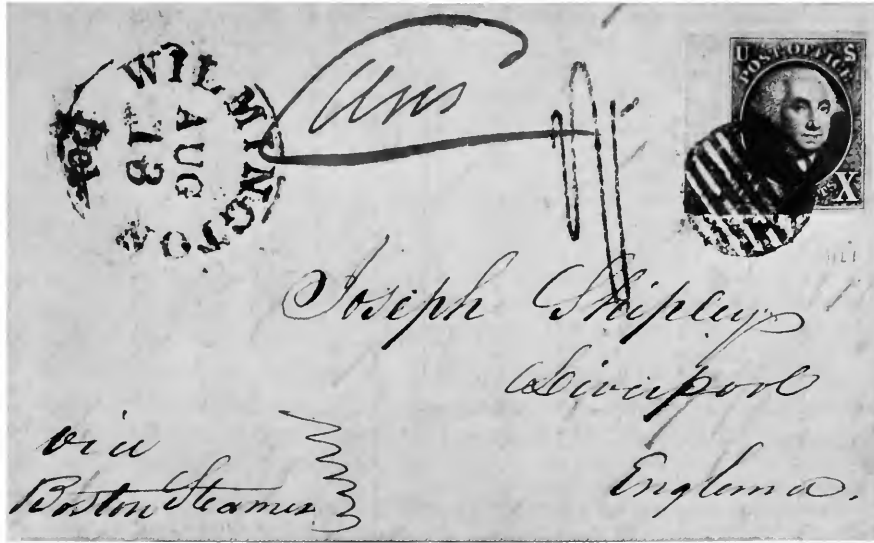 WILMINGTON
Del.
AUG
18
U S
POST OFFICE
X
Joseph Shipley
Liverpool
England.
via
Boston Steamer